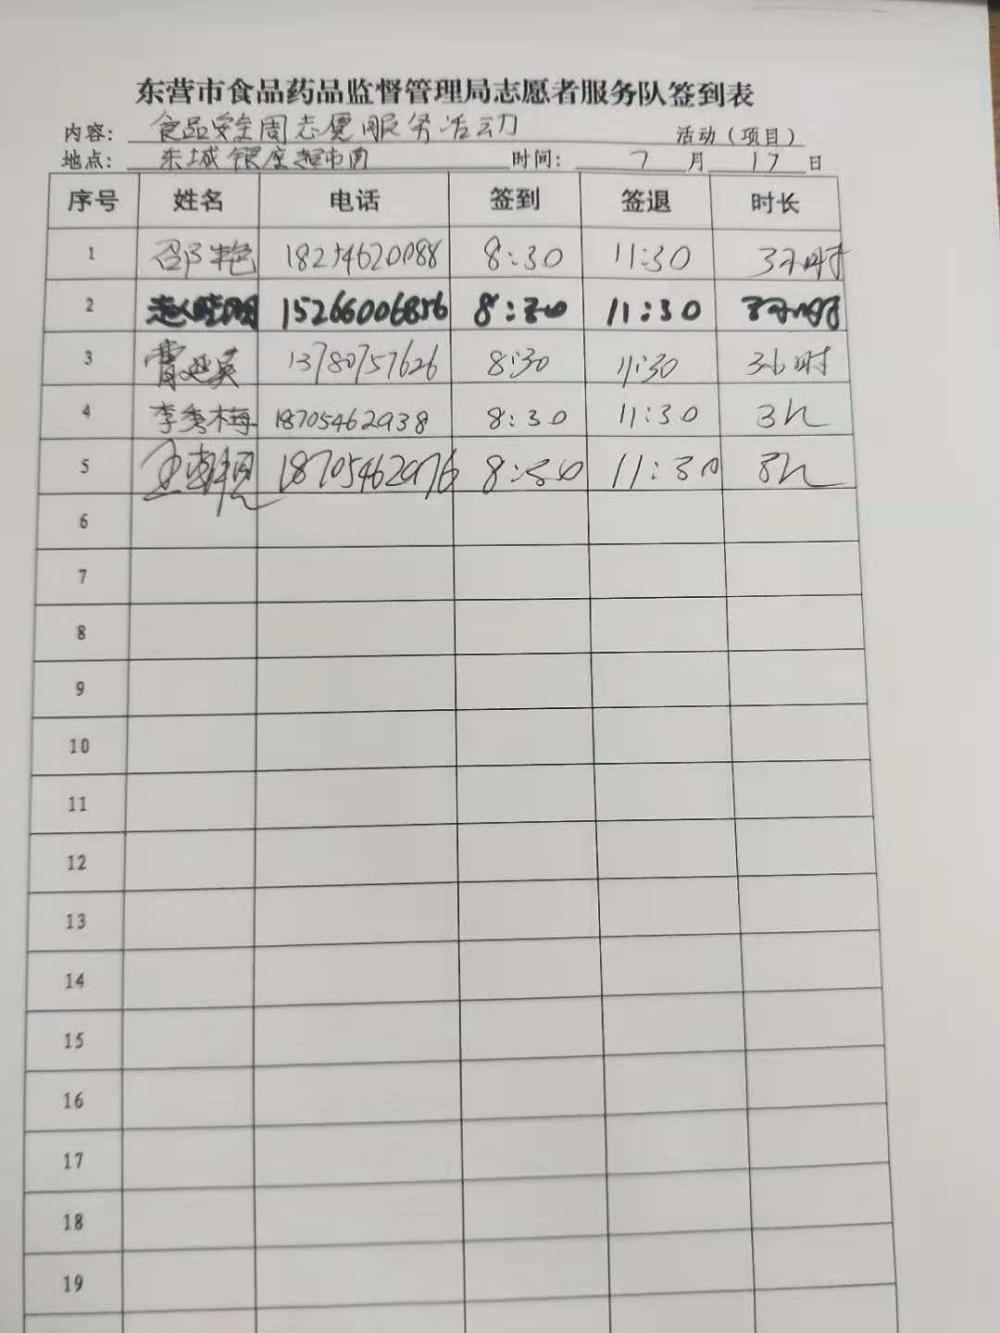 东营市食品药品监督管理局志愿者服务队签到表
内容: 食品安全周志愿服务活动 活动（项目）
地点: 东城银座超市南 时间: 7 月 17 日
序号 姓名 电话 签到 签退 时长
1 邵艳 18254620088 8:30 11:30 3小时
2 赵晓明 15266006856 8:30 11:30 3小时
3 曹延英 13780757626 8:30 11:30 3小时
4 李秀梅 18705462938 8:30 11:30 3h
5 18705462976 8:30 11:30 3h
6
7
8
9
10
11
12
13
14
15
16
17
18
19